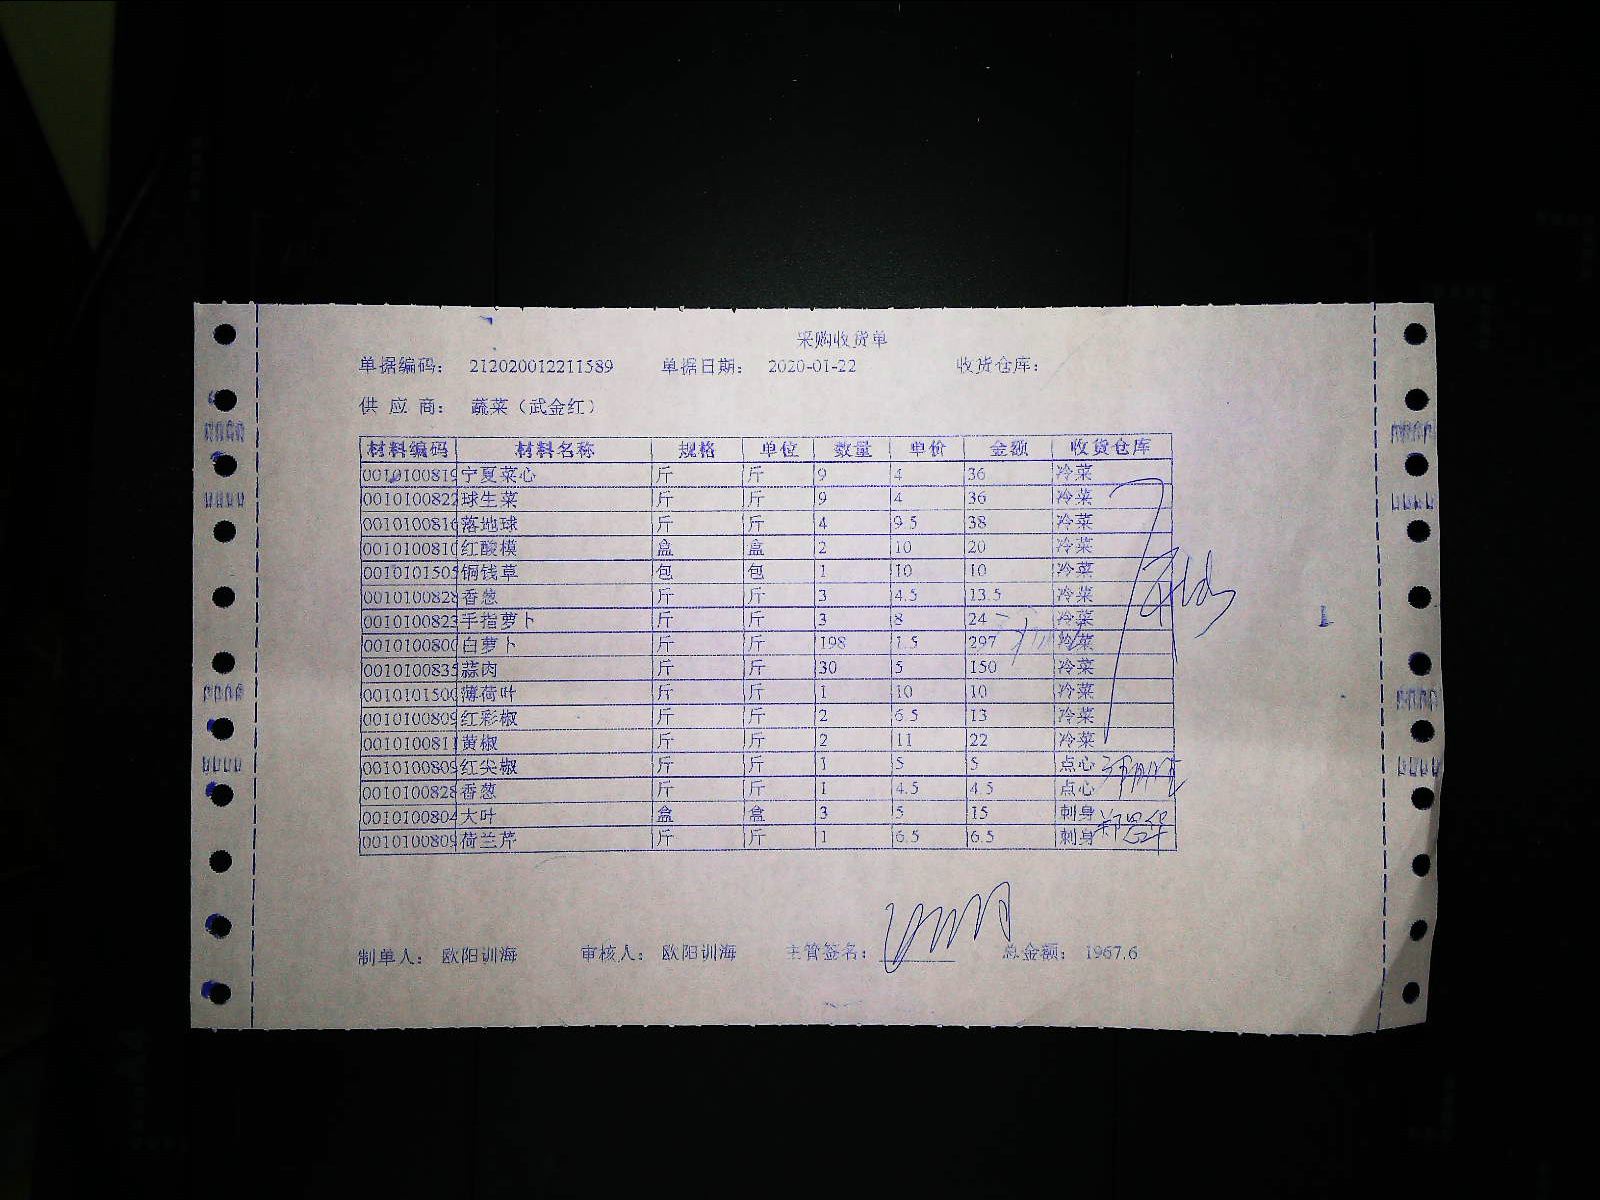 采购收货单
单据编码： 212020012211589 单据日期： 2020-01-22 收货仓库：
供 应 商： 蔬菜（武金红）
材料编码 材料名称 规格 单位 数量 单价 金额 收货仓库
0010100819 宁夏菜心 斤 斤 9 4 36 冷菜
0010100822 球生菜 斤 斤 9 4 36 冷菜
0010100816 落地球 斤 斤 4 9.5 38 冷菜
0010100810 红酸模 盒 盒 2 10 20 冷菜
0010101505 铜钱草 包 包 1 10 10 冷菜
0010100828 香葱 斤 斤 3 4.5 13.5 冷菜
0010100823 手指萝卜 斤 斤 3 8 24 冷菜
0010100800 白萝卜 斤 斤 198 1.5 297 冷菜
0010100835 蒜肉 斤 斤 30 5 150 冷菜
0010101500 薄荷叶 斤 斤 1 10 10 冷菜
0010100809 红彩椒 斤 斤 2 6.5 13 冷菜
0010100811 黄椒 斤 斤 2 11 22 冷菜
0010100809 红尖椒 斤 斤 1 5 5 点心
0010100828 香葱 斤 斤 1 4.5 4.5 点心
0010100804 大叶 盒 盒 3 5 15 刺身
0010100809 荷兰芹 斤 斤 1 6.5 6.5 刺身
制单人： 欧阳训海 审核人： 欧阳训海 主管签名： 总金额： 1967.6